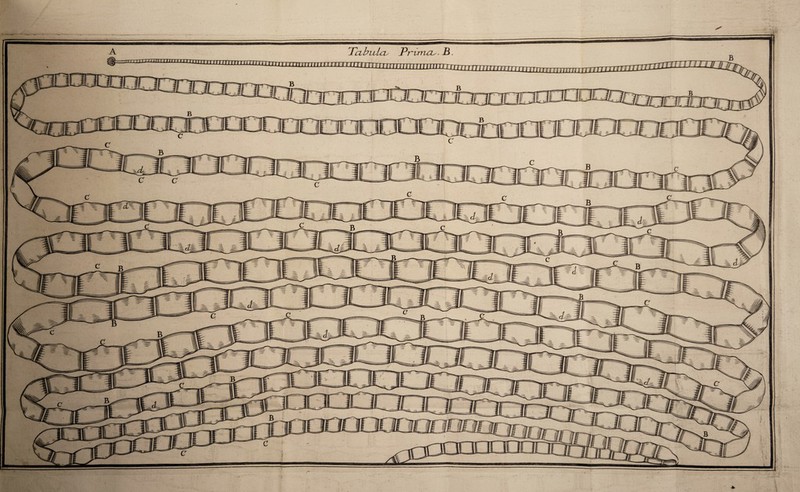 A Tabula Prima. B. B
B B B
B B
C C
C B B C B C
d
C C C
C C C B C
d d d
C C B C B C
d d B C d
C B d d C B
d B C
C C C B C d
B C B d
C
C B d C
C B d
B B
C C